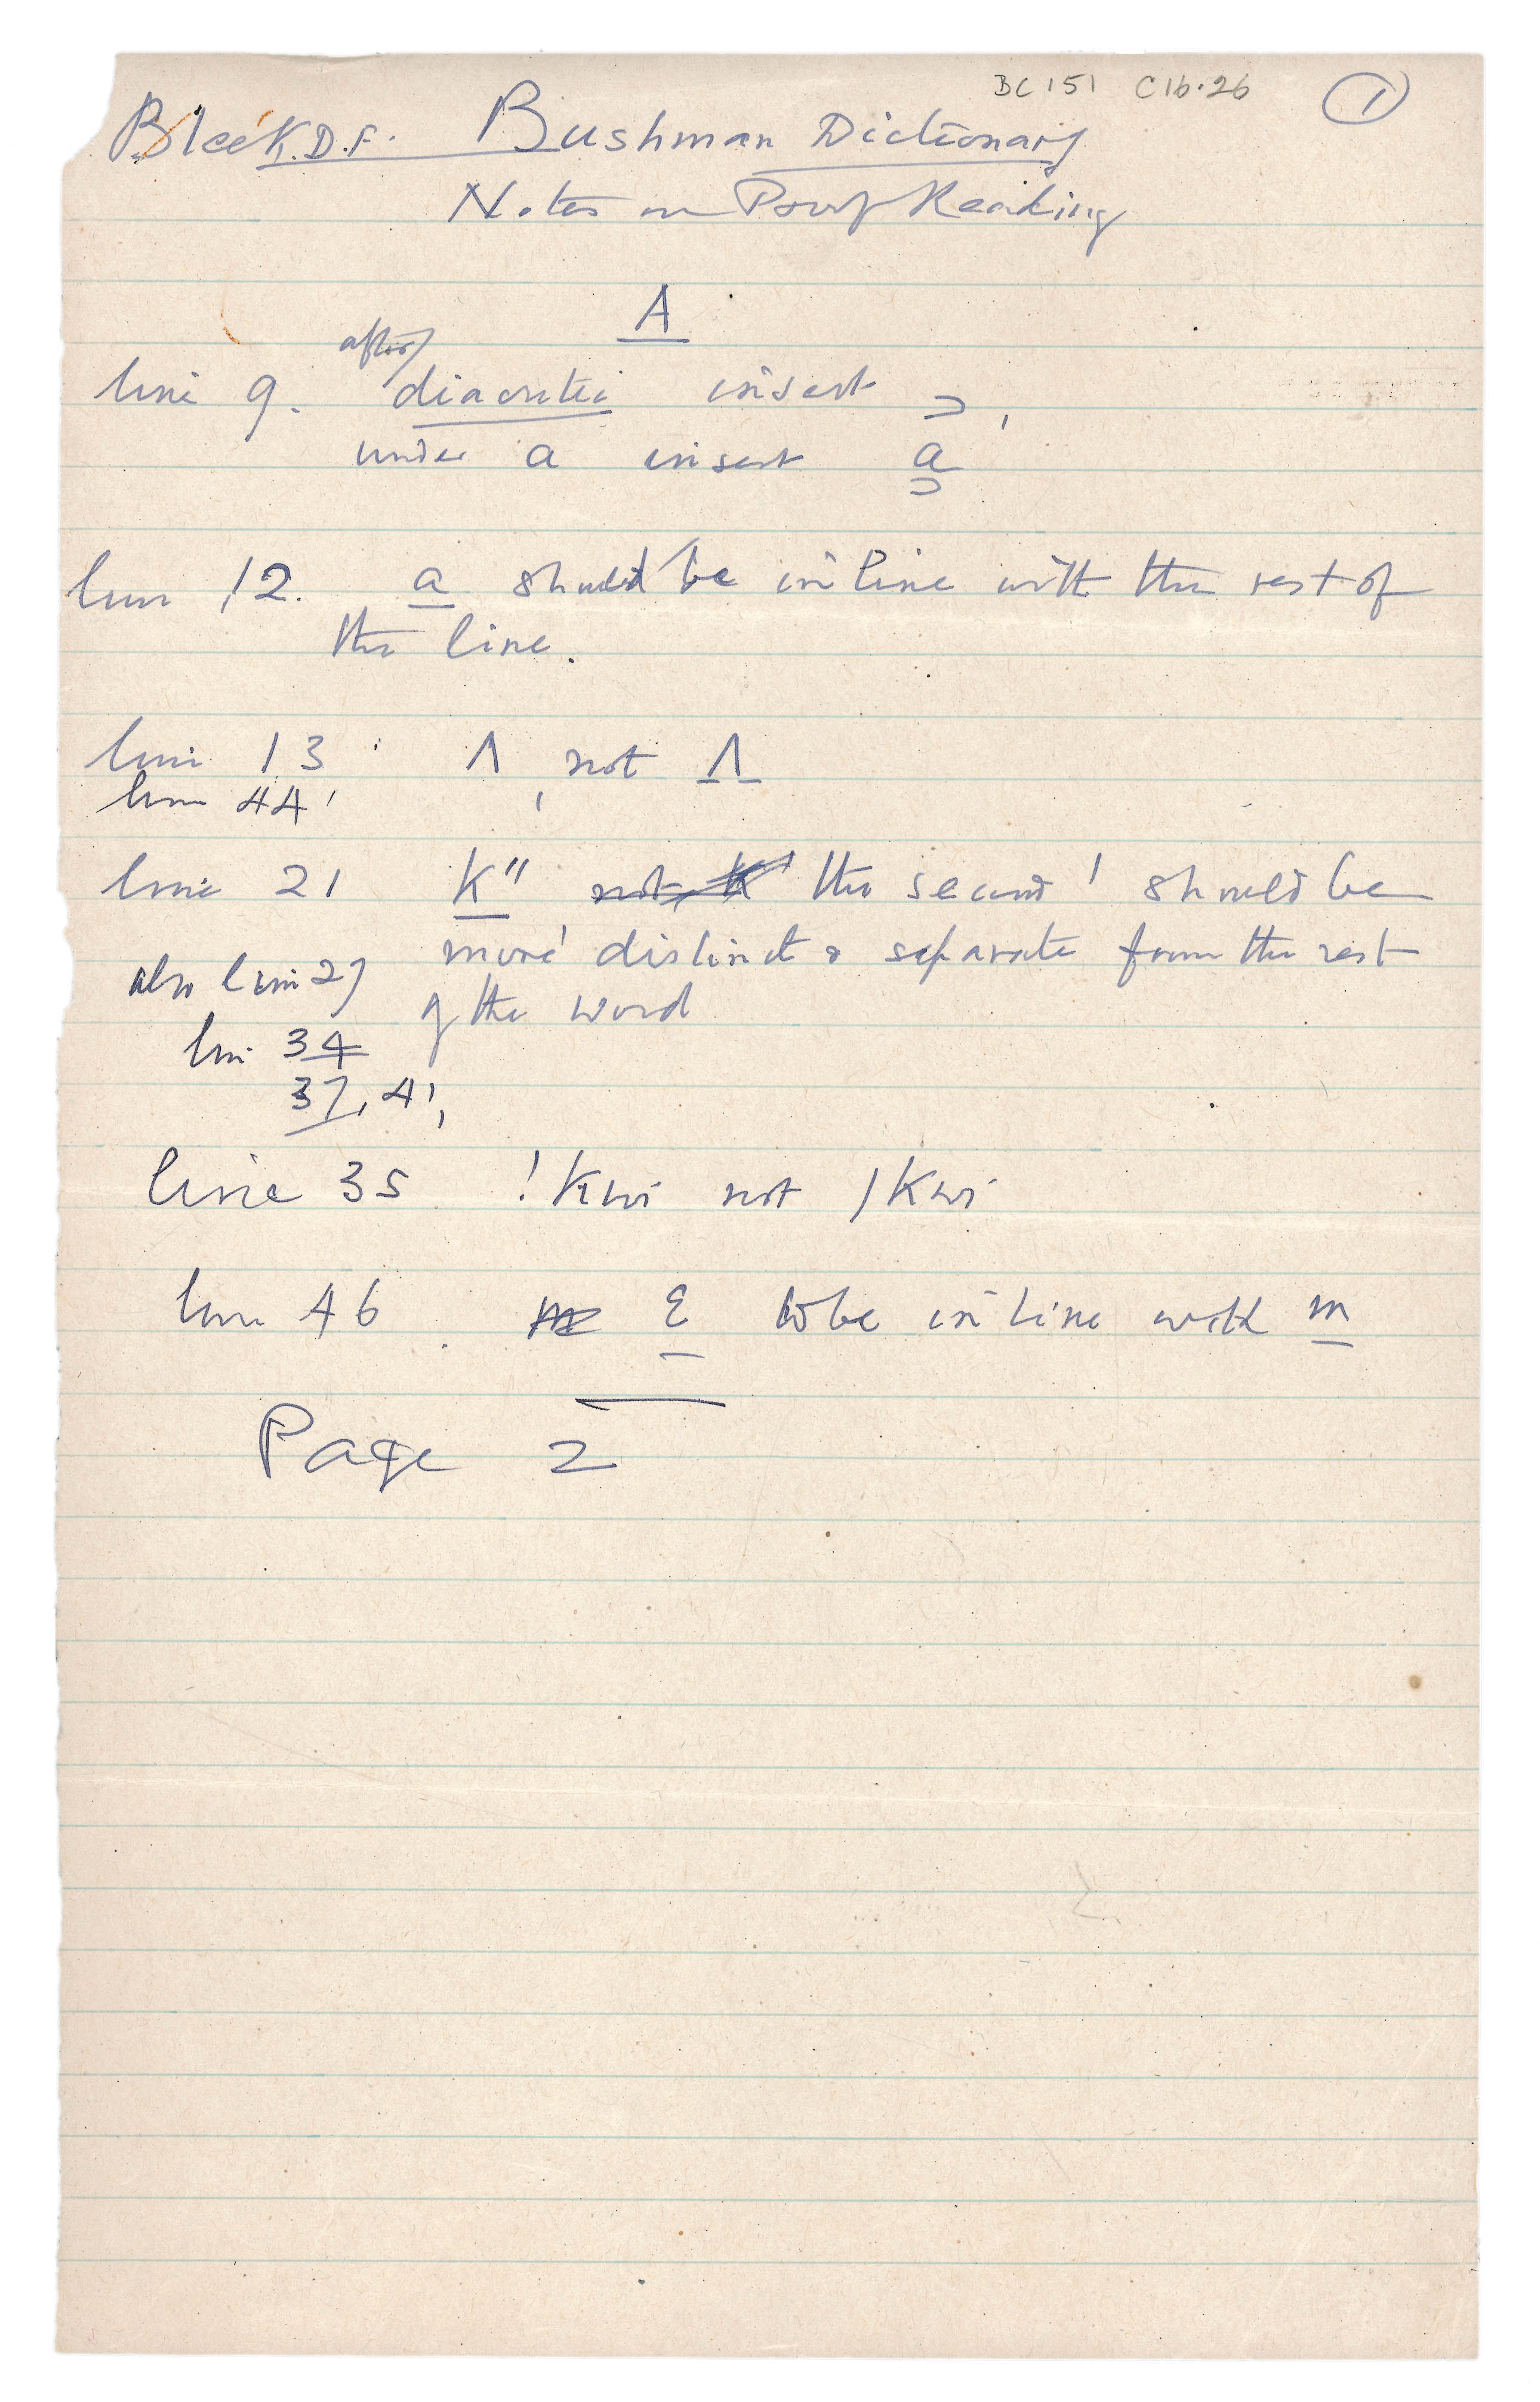 BC 151 C16.26 1
Bleek. D.F. Bushman Dictionary
Notes on Proof Reading
A
after
line 9. diacritic insert ɔ,
under a insert a̱
line 12. a should be in line with the rest of
the line.
line 13 Λ not Λ
line 44
line 21 K" not K' the second ' should be
more distinct & separate from the rest
also line 27 of the word
line 34
37, 41,
line 35 !Kwi not /Kwi
line 46 ɛ to be in line with m
Page 2